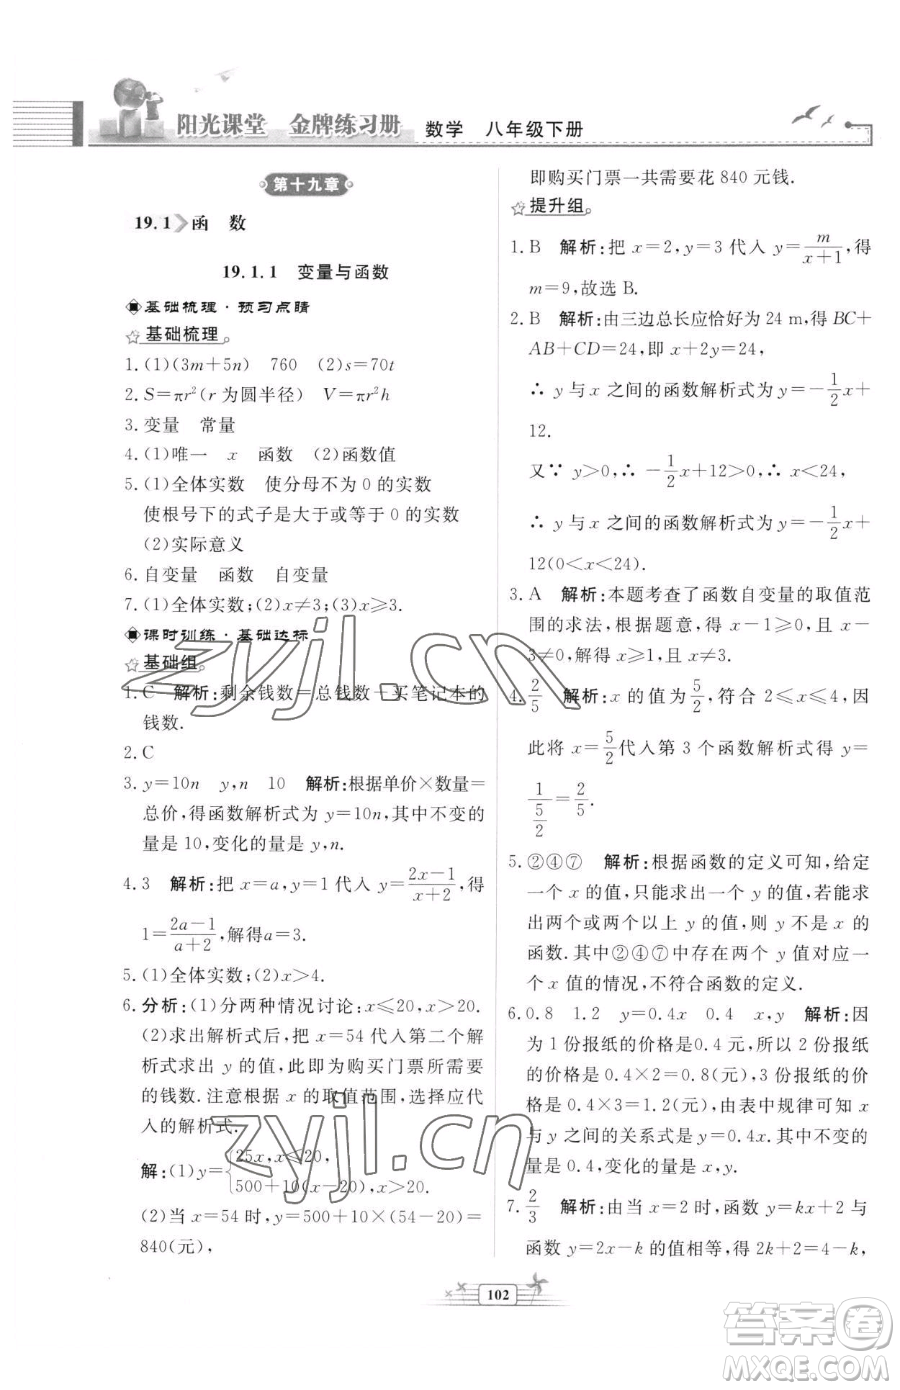 阳光课堂 金牌练习册 数学 八年级下册
第十九章
19.1 函 数
19.1.1 变量与函数
基础梳理·预习点睛
基础梳理
1.(1)(3m+5n) 760 (2)s=70t
2.S=πr²(r 为圆半径) V=πr²h
3.变量 常量
4.(1)唯一 x 函数 (2)函数值
5.(1)全体实数 使分母不为 0 的实数
使根号下的式子是大于或等于 0 的实数
(2)实际意义
6.自变量 函数 自变量
7.(1)全体实数;(2)x≠3;(3)x≥3.
课时训练·基础达标
基础组
1.C 解析:剩余钱数=总钱数-买笔记本的
钱数.
2.C
3.y=10n y,n 10 解析:根据单价×数量=
总价,得函数解析式为 y=10n,其中不变的
量是 10,变化的量是 y,n.
4.3 解析:把 x=a,y=1 代入 y=(2x-1)/(x+2),得
1=(2a-1)/(a+2),解得a=3.
5.(1)全体实数;(2)x>4.
6.分析:(1)分两种情况讨论:x≤20,x>20.
(2)求出解析式后,把 x=54 代入第二个解
析式求出 y 的值,此即为购买门票需要花
的钱数.注意根据 x 的取值范围,选择应代
入的解析式.
解:(1)y={25x,x≤20,
500+10(x-20),x>20.
(2)当 x=54 时,y=500+10×(54-20)=
840(元),
即购买门票一共需要花 840 元钱.
提升组
1.B 解析:把 x=2,y=3 代入 y=m/(x+1),得
m=9,故选 B.
2.B 解析:由三边总长应恰好为 24 m,得 BC+
AB+CD=24,即 x+2y=24,
∴ y 与 x 之间的函数解析式为 y=-1/2x+
12.
又∵ y>0,∴ -1/2x+12>0,∴ x<24,
∴ y 与 x 之间的函数解析式为 y=-1/2x+
12(0<x<24).
3.A 解析:本题考查了函数自变量的取值范
围的求法,根据题意,得 x-1≥0,且 x-
3≠0,解得 x≥1,且 x≠3.
4.2/5 解析:x 的值为5/2,符合 2≤x≤4,因
此将 x=5/2代入第 3 个函数解析式得 y=
1/(5/2)=2/5.
5.②④⑦ 解析:根据函数的定义可知,给定
一个 x 的值,只能求出一个 y 的值,若能求
出两个或两个以上 y 的值,则 y 不是 x 的
函数.其中②④⑦中存在两个 y 值对应一
个 x 值的情况,不符合函数的定义.
6.0.8 1.2 y=0.4x 0.4 x,y 解析:因
为 1 份报纸的价格是 0.4 元,所以 2 份报纸
的价格是 0.4×2=0.8(元),3 份报纸的价
格是 0.4×3=1.2(元),由表中规律可知 x
与 y 之间的关系式是 y=0.4x.其中不变的
量是 0.4,变化的量是 x,y.
7.2/3 解析:由当 x=2 时,函数 y=kx+2 与
函数 y=2x-k 的值相等,得 2k+2=4-k,
102
zyjl.cn
zyjl.cn
答案圈
MXQE.COM